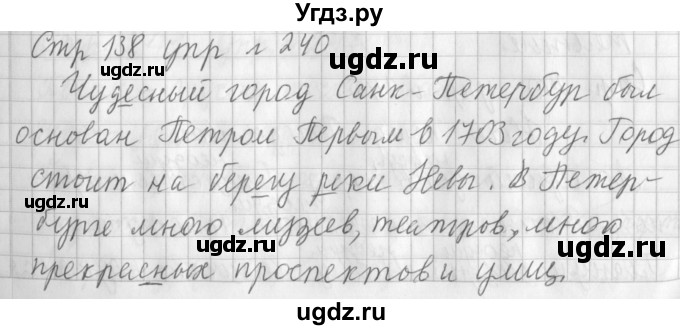 Угдз.ру
Стр 138 упр г 240
Чудесный город Санк-Петербур был
основан Петром Первым в 1703 году. Город
стоит на берегу реки Невы. В Петер-
бурге много музеев, театров, много
прекрасных проспектов и улиц.
ugdz.ru
ugdz.ru
ugdz.ru
ugdz.ru
ugdz.ru
ugdz.ru
ugdz.ru
ugdz.ru
Угдз.ру